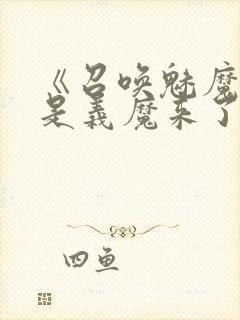 《召唤魅魔
是义魔来了
四鱼